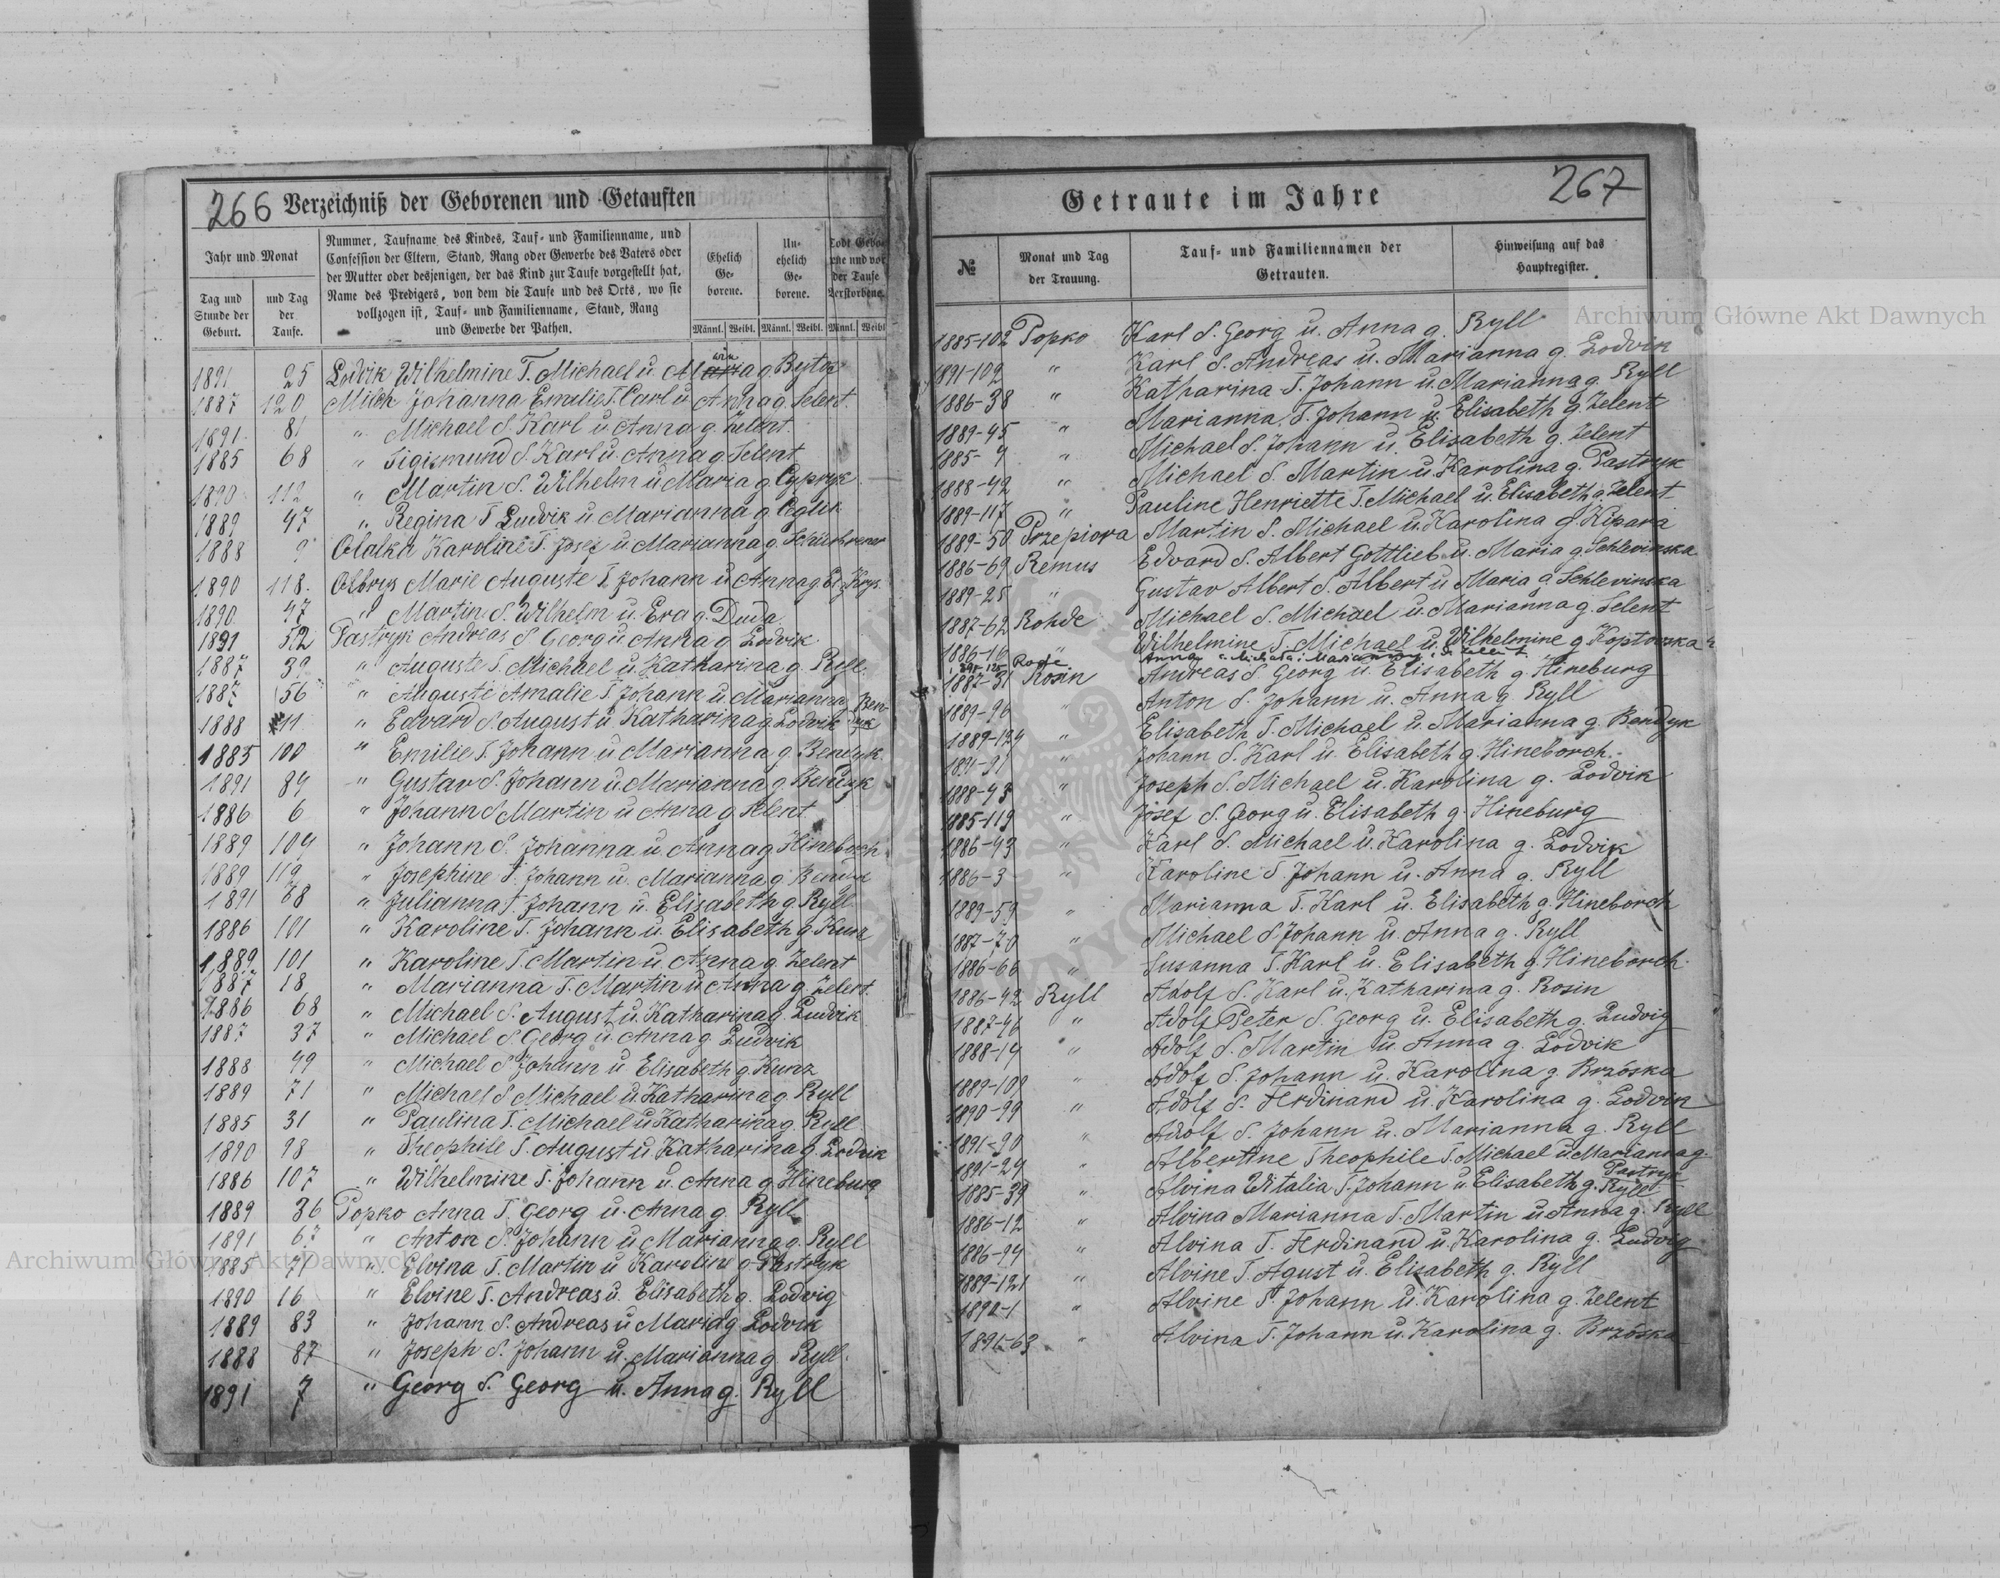 266 Verzeichniß der Geborenen und Getauften
Jahr und Monat
Tag und Stunde der Geburt.
und Tag der Taufe.
Nummer, Taufname des Kindes, Tauf- und Familienname, und
Confession der Eltern, Stand, Rang oder Gewerbe des Vaters oder
der Mutter oder desjenigen, der das Kind zur Taufe vorgestellt hat,
Name des Predigers, von dem die Taufe und des Orts, wo sie
vollzogen ist, Tauf- und Familienname, Stand, Rang
und Gewerbe der Pathen.
Ehelich Ge- borene.
Un- ehelich Ge- borene.
Todt Gebo- rne und vor der Taufe Verstorbene.
Männl. Weibl. Männl. Weibl. Männl. Weibl.
1891 25 Lodvik Wilhelmine T. Michael u. g. Bytox
1887 120 Milck Johanna Emilie T. Carl u. Anna g. Selent.
1891 81 " Michael S. Karl u. Anna g. Zelent.
1885 68 " Sigismund S. Karl u. Anna g. Selent
1890 112 " Martin S. Wilhelm u. Maria g. Cypryk
1889 47 " Regina T. Ludvik u. Marianna g. Ceglik
1888 9 Karoline T. Josef u. Marianna g.
1890 118. Olbrys Marie Auguste T. Johann u. Anna g.
1890 47 " Martin S. Wilhelm u. Eva g. Duda
1891 52 Pastryk Andreas S. Georg u. Anna g. Lodvik.
1887 39 " Auguste T. Michael u. Katharina g. Ryll.
1887 56 " Auguste Amalie T. Johann u. Marianna Ben-
dyk
1888 11 " Edvard S. August u. Katharina g. Lodvik
1885 100 " Emilie T. Johann u. Marianna g. Bendyk.
1891 84 " Gustav S. Johann u. Marianna g. Bendyk
1886 6 " Johann S. Martin u. Anna g. Selent
1889 104 " Johann S. Johanna u. Anna g. Hineborch.
1889 119 " Josephine T. Johann u. Marianna g.
1891 68 " Julianna T. Johann u. Elisabeth g. Ryll
1886 101 " Karoline T. Johann u. Elisabeth g. Kunz
1889 101 " Karoline T. Martin u. Anna g. Zelent
1887 18 " Marianna T. Martin u. Anna g. Zelent.
1886 68 " Michael S. August u. Katharina g. Ludvik
1887 37 " Michael S. Georg u. Anna g. Ludvik
1888 49 " Michael S. Johann u. Elisabeth g. Kunz
1889 71 " Michael S. Michael u. Katharina g. Ryll
1885 31 " Paulina T. Michael u. Katharina g. Ryll
1890 98 " Theophile T. August u. Katharina g. Lodvik
1886 107 " Wilhelmine T. Johann u. Anna g. Hineburg
1889 36 Popko Anna T. Georg u. Anna g. Ryll
1891 67 " Anton S. Johann u. Marianna g. Ryll
1885 71 " Elvina T. Martin u. Karolina g. Pastryk
1890 16 " Elvine T. Andreas u. Elisabeth g. Lodvig
1889 83 " Johann S. Andreas u. Maria g. Lodvik
1888 87 " Joseph S. Johann u. Marianna g. Ryll.
1891 7 " Georg S. Georg u. Anna g. Ryll
Getraute im Jahre 267
№
Monat und Tag der Trauung.
Tauf- und Familiennamen der Getrauten.
Hinweisung auf das Hauptregister.
1885-102 Popko Karl S. Georg u. Anna g. Ryll
1891-102 " Karl S. Andreas u. Marianna g. Lodvik
1886-38 " Katharina T. Johann u. Marianna g. Ryll
1889-45 " Marianna T. Johann u. Elisabeth g. Zelent
1885-4 " Michael S. Johann u. Elisabeth g. Zelent
1888-42 " Michael S. Martin u. Karolina g. Pastryk
1889-117 " Pauline Henriette T. Michael u. Elisabeth g. Zelent
1889-50 Przepiora Martin S. Michael u. Karolina g. Kipara
1886-69 Remus Edvard S. Albert Gottlieb u. Maria g. Schlevinska
1889-25 " Gustav Albert S. Albert u. Maria g. Schlevinska
1887-62 Rohde Michael S. Michael u. Marianna g. Selent
1886-16 " Wilhelmine T. Michael u. Wilhelmine g.
Anna c. Michała i Marianny
1887-31 Rosin Andreas S. Georg u. Elisabeth g. Hineburg
1889-96 " Anton S. Johann u. Anna g. Ryll
1889-129 " Elisabeth T. Michael u. Marianna g. Bendyk
1891-31 " Johann S. Karl u. Elisabeth g. Hineborch.
1888-93 " Joseph S. Michael u. Karolina g. Lodvik
1885-119 " Josef S. Georg u. Elisabeth g. Hineburg
1886-93 " Karl S. Michael u. Karolina g. Lodvik
1886-3 " Karoline T. Johann u. Anna g. Ryll
1889-59 " Marianna T. Karl u. Elisabeth g. Hineborch
1887-70 " Michael S. Johann u. Anna g. Ryll
1886-66 " Susanna T. Karl u. Elisabeth g. Hineborch.
1886-42 Ryll Adolf S. Karl u. Katharina g. Rosin
1887-46 " Adolf Peter S. Georg u. Elisabeth g. Ludvig
1888-14 " Adolf S. Martin u. Anna g. Lodvik
1889-108 " Adolf S. Johann u. Karolina g. Brzóska
1890-99 " Adolf S. Ferdinand u. Karolina g. Lodvik
1891-90 " Adolf S. Johann u. Marianna g. Ryll
1891-29 " Albertine Theophile T. Michael u. Marianna g.
Pastryk
1885-39 " Alvina Witalia T. Johann u. Elisabeth g. Ryll
1886-12 " Alvina Marianna T. Martin u. Anna g. Ryll
1886-94 " Alvina T. Ferdinand u. Karolina g. Ludvig
1889-121 " Alvine T. Agust u. Elisabeth g. Ryll
1892-1 " Alvine T. Johann u. Karolina g. Zelent
1891-63 " Alvina T. Johann u. Karolina g. Brzóska
Archiwum Główne Akt Dawnych
Archiwum Główne Akt Dawnych